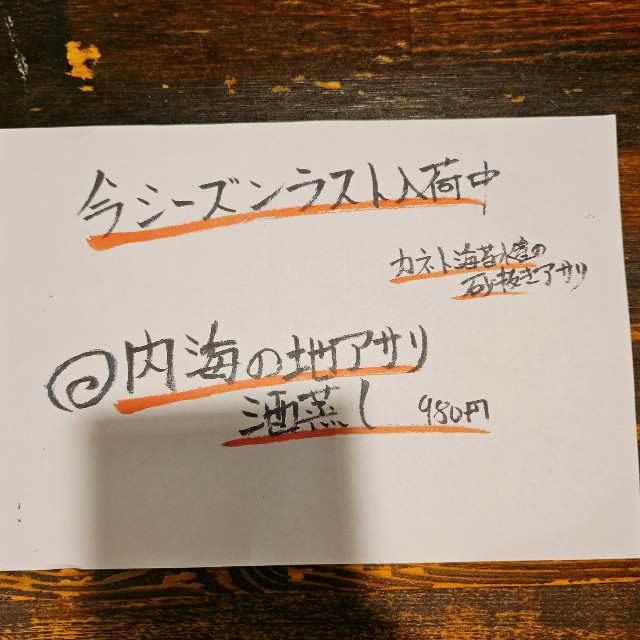 今シーズンラスト入荷中
カネト海苔水産の
砂抜きアサリ
内海の地アサリ
酒蒸し 980円